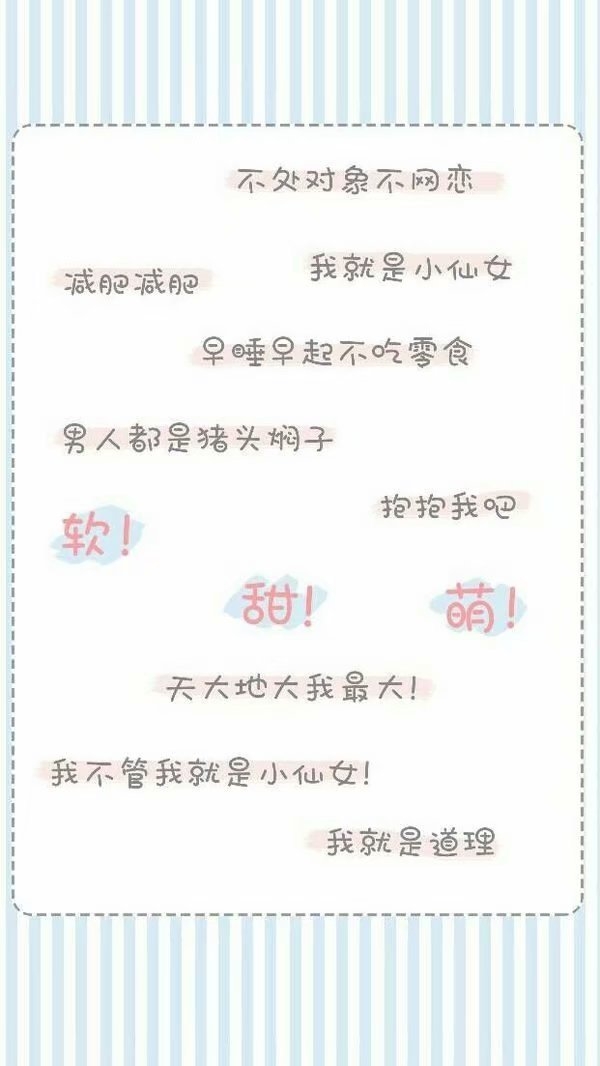 不处对象不网恋
我就是小仙女
减肥减肥
早睡早起不吃零食
男人都是猪头焖子
抱抱我吧
软!
甜!
萌!
天大地大我最大!
我不管我就是小仙女!
我就是道理